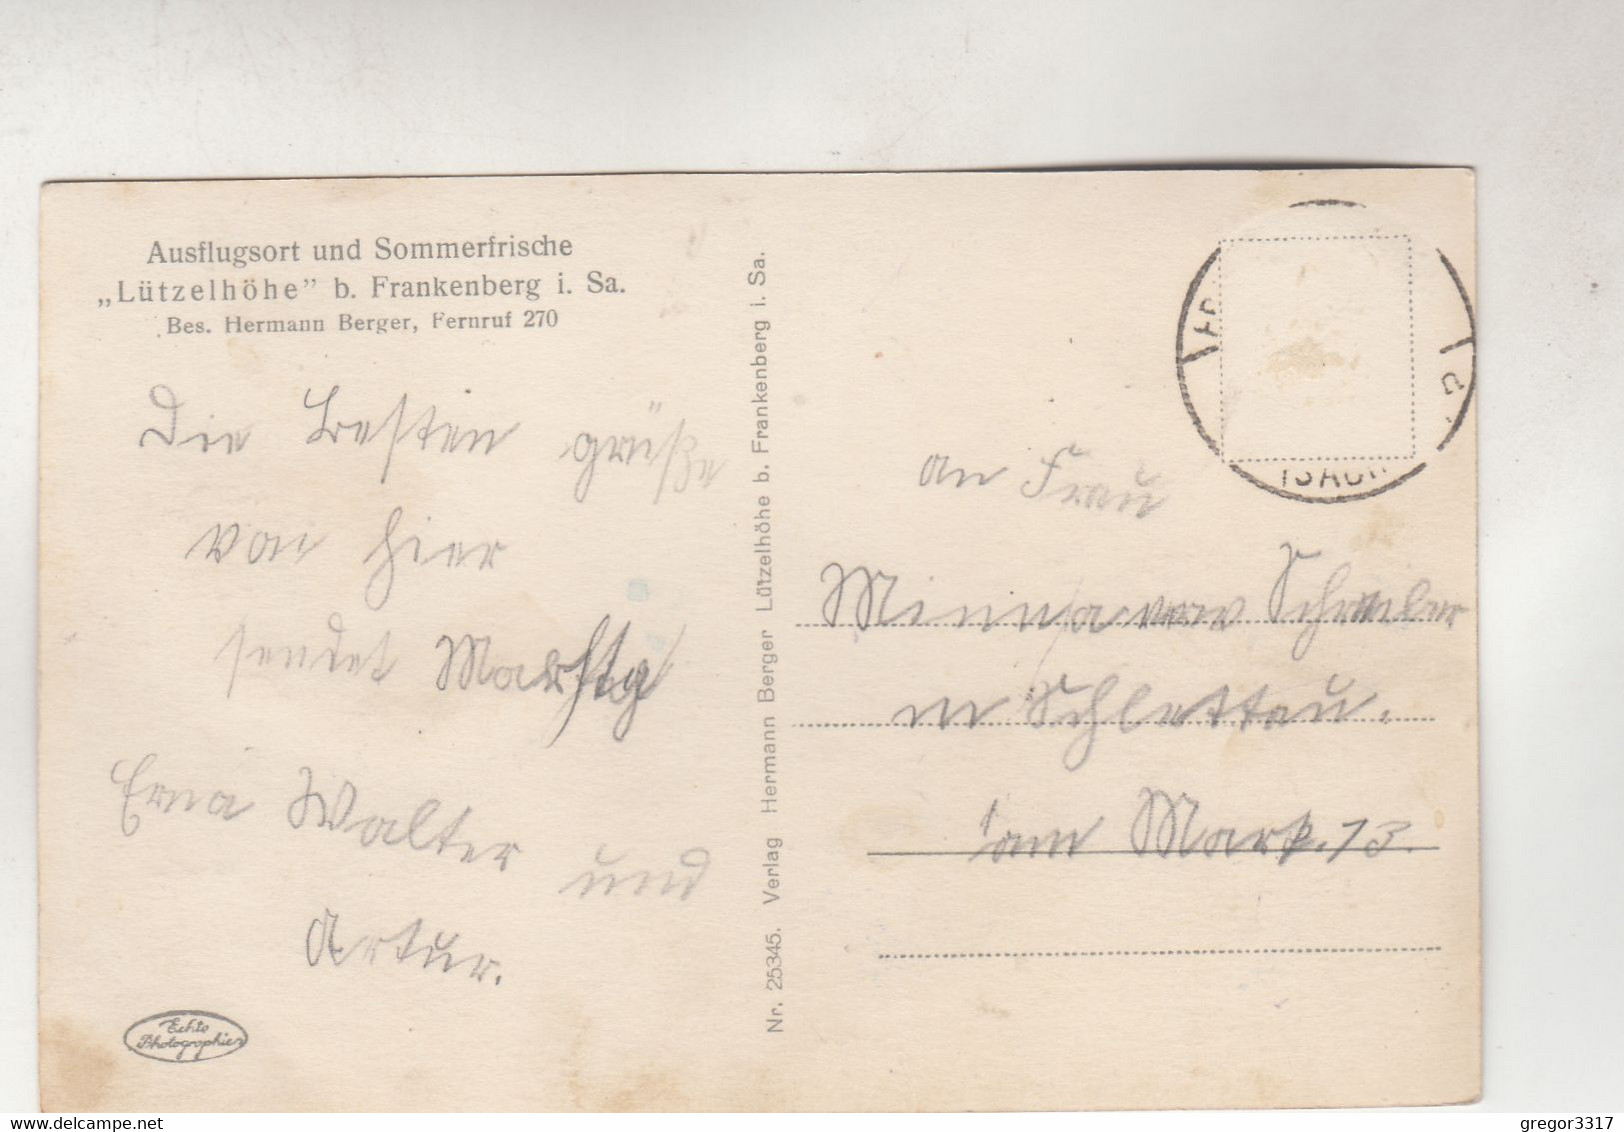 Ausflugsort und Sommerfrische
„Lützelhöhe" b. Frankenberg i. Sa.
Bes. Hermann Berger, Fernruf 270
Die besten grüße
von hier
sendet
Erna Walter und
Artur.
Echte
Photographie
Nr. 25345. Verlag Hermann Berger Lützelhöhe b. Frankenberg i. Sa.
an Frau
Minna Schreiber
in Schlettau.
am Mark. 13.
delcampe.net
gregor3317